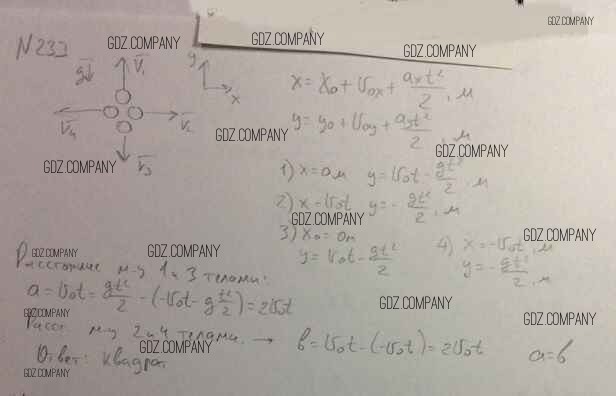 N 233
GDZ.COMPANY
GDZ.COMPANY
GDZ.COMPANY
GDZ.COMPANY
g V₁
y
x
V₄ V₂
V₃
GDZ.COMPANY
GDZ.COMPANY
x = x₀ + v₀ₓ + aₓt²/2, м
y = y₀ + v₀y + ayt²/2, м
GDZ.COMPANY
1) x = 0 м y = v₀t - gt²/2, м
2) x = v₀t y = - gt²/2, м
GDZ.COMPANY
3) x₀ = 0 м
y = v₀t - gt²/2
4) x = -v₀t, м
y = - gt²/2, м
GDZ.COMPANY
GDZ.COMPANY
GDZ.COMPANY
Расстояние м-у 1 и 3 телами:
a = v₀t = gt²/2 - (-v₀t - g t²/2) = 2v₀t
GDZ.COMPANY
GDZ.COMPANY
GDZ.COMPANY
Расс м-у 2 и 4 телами → b = v₀t - (-v₀t) = 2v₀t a = b
GDZ.COMPANY
Ответ: квадрат
GDZ.COMPANY